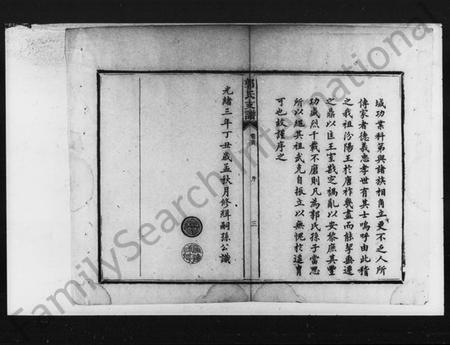 成功業科第與諸族相角立更不乏人所
傳家者德義忠孝世有其士嗚呼由此稽
之我祖汾陽王於唐祚幾盡而能挈垂遷
之鼎以匡王室戡定禍亂以安黎庶其豐
功盛烈千載不磨則凡為郭氏孫子當思
所以繩其祖武克自振立以無忝於遠冑
可也故謹序之
郭氏支譜
序
三
光緒三年丁丑歲孟秋月修緝嗣孫公識
FamilySearch International